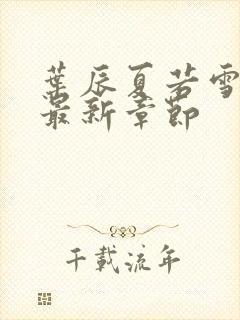 葉辰夏若雪
最新章節
千載流年